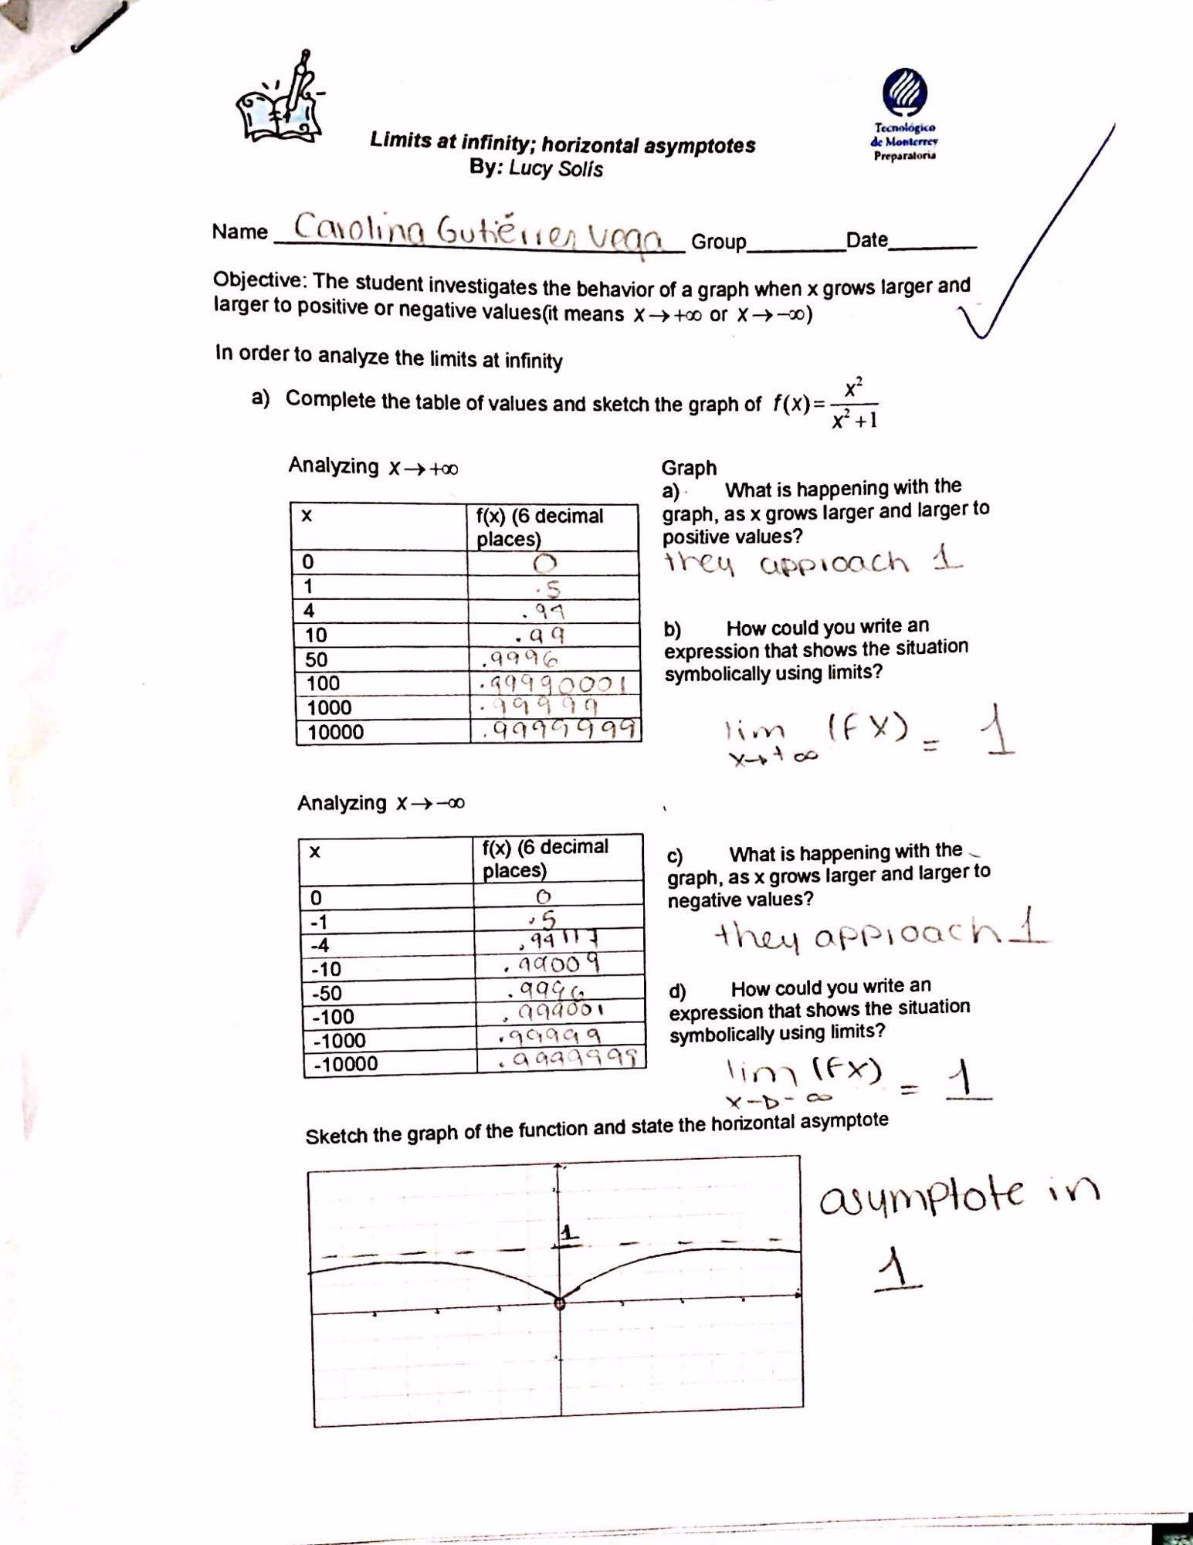 Limits at infinity; horizontal asymptotes
By: Lucy Solís
Tecnológico
de Monterrey
Preparatoria
Name Carolina Gutiérrez Vega Group________Date________
Objective: The student investigates the behavior of a graph when x grows larger and
larger to positive or negative values(it means x→+∞ or x→-∞)
In order to analyze the limits at infinity
a) Complete the table of values and sketch the graph of f(x)= x²/(x²+1)
Analyzing x→+∞
x f(x) (6 decimal places)
0 0
1 .5
4 .94
10 .99
50 .9996
100 .99990001
1000 .99999
10000 .9999999
Graph
a) What is happening with the
graph, as x grows larger and larger to
positive values?
they approach 1
b) How could you write an
expression that shows the situation
symbolically using limits?
lim (fx) = 1
x→+∞
Analyzing x→-∞
x f(x) (6 decimal places)
0 0
-1 .5
-4 .94117
-10 .99009
-50 .9996
-100 .999001
-1000 .99999
-10000 .9999999
c) What is happening with the
graph, as x grows larger and larger to
negative values?
they approach 1
d) How could you write an
expression that shows the situation
symbolically using limits?
lim (fx) = 1
x→-∞
Sketch the graph of the function and state the horizontal asymptote
1
asymptote in
1